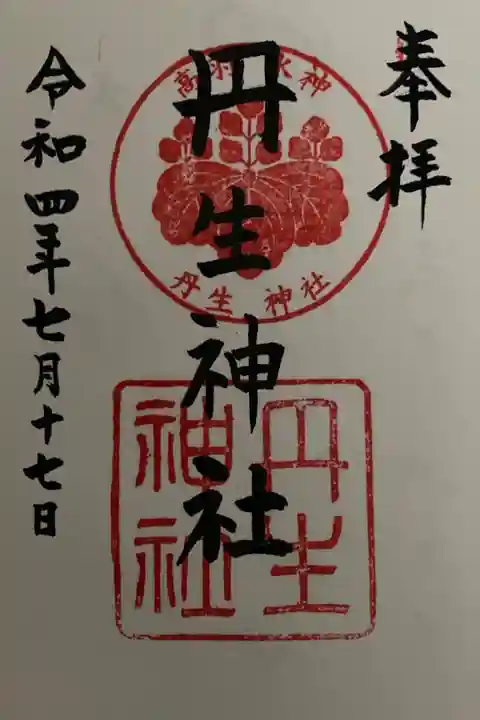 奉拝
丹生神社
丹生神社
丹生
神社
令和四年七月十七日